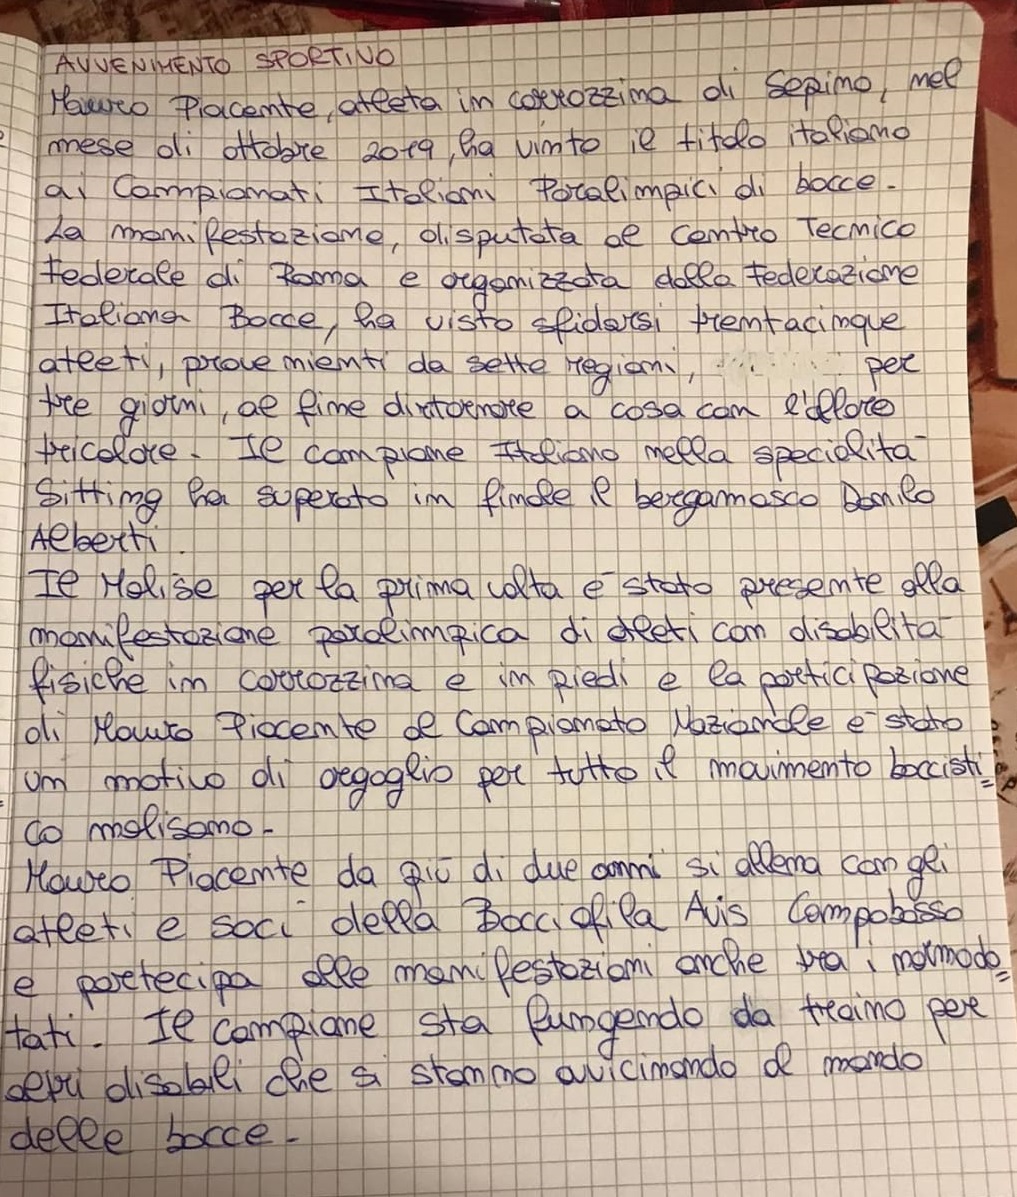 AVVENIMENTO SPORTIVO
Mauro Piacente, atleta in carrozzina di Sepino, nel
mese di ottobre 2019, ha vinto il titolo italiano
ai Campionati Italiani Paralimpici di bocce.
La manifestazione, disputata al Centro Tecnico
Federale di Roma e organizzata dalla Federazione
Italiana Bocce, ha visto sfidarsi trentacinque
atleti, provenienti da sette regioni, per
tre giorni, al fine di ritornare a casa con l'alloro
tricolore. Il campione Italiano nella specialità
Sitting ha superato in finale il bergamasco Danilo
Alberti.
Il Molise per la prima volta è stato presente alla
manifestazione paralimpica di atleti con disabilità
fisiche in carrozzina e in piedi e la partecipazione
di Mauro Piacente al Campionato Nazionale è stato
un motivo di orgoglio per tutto il movimento boccisti=
co molisano.
Mauro Piacente da più di due anni si allena con gli
atleti e soci della Bocciofila Avis Campobasso
e partecipa alle manifestazioni anche tra i normodo=
tati. Il campione sta fungendo da traino per
altri disabili che si stanno avvicinando al mondo
delle bocce.